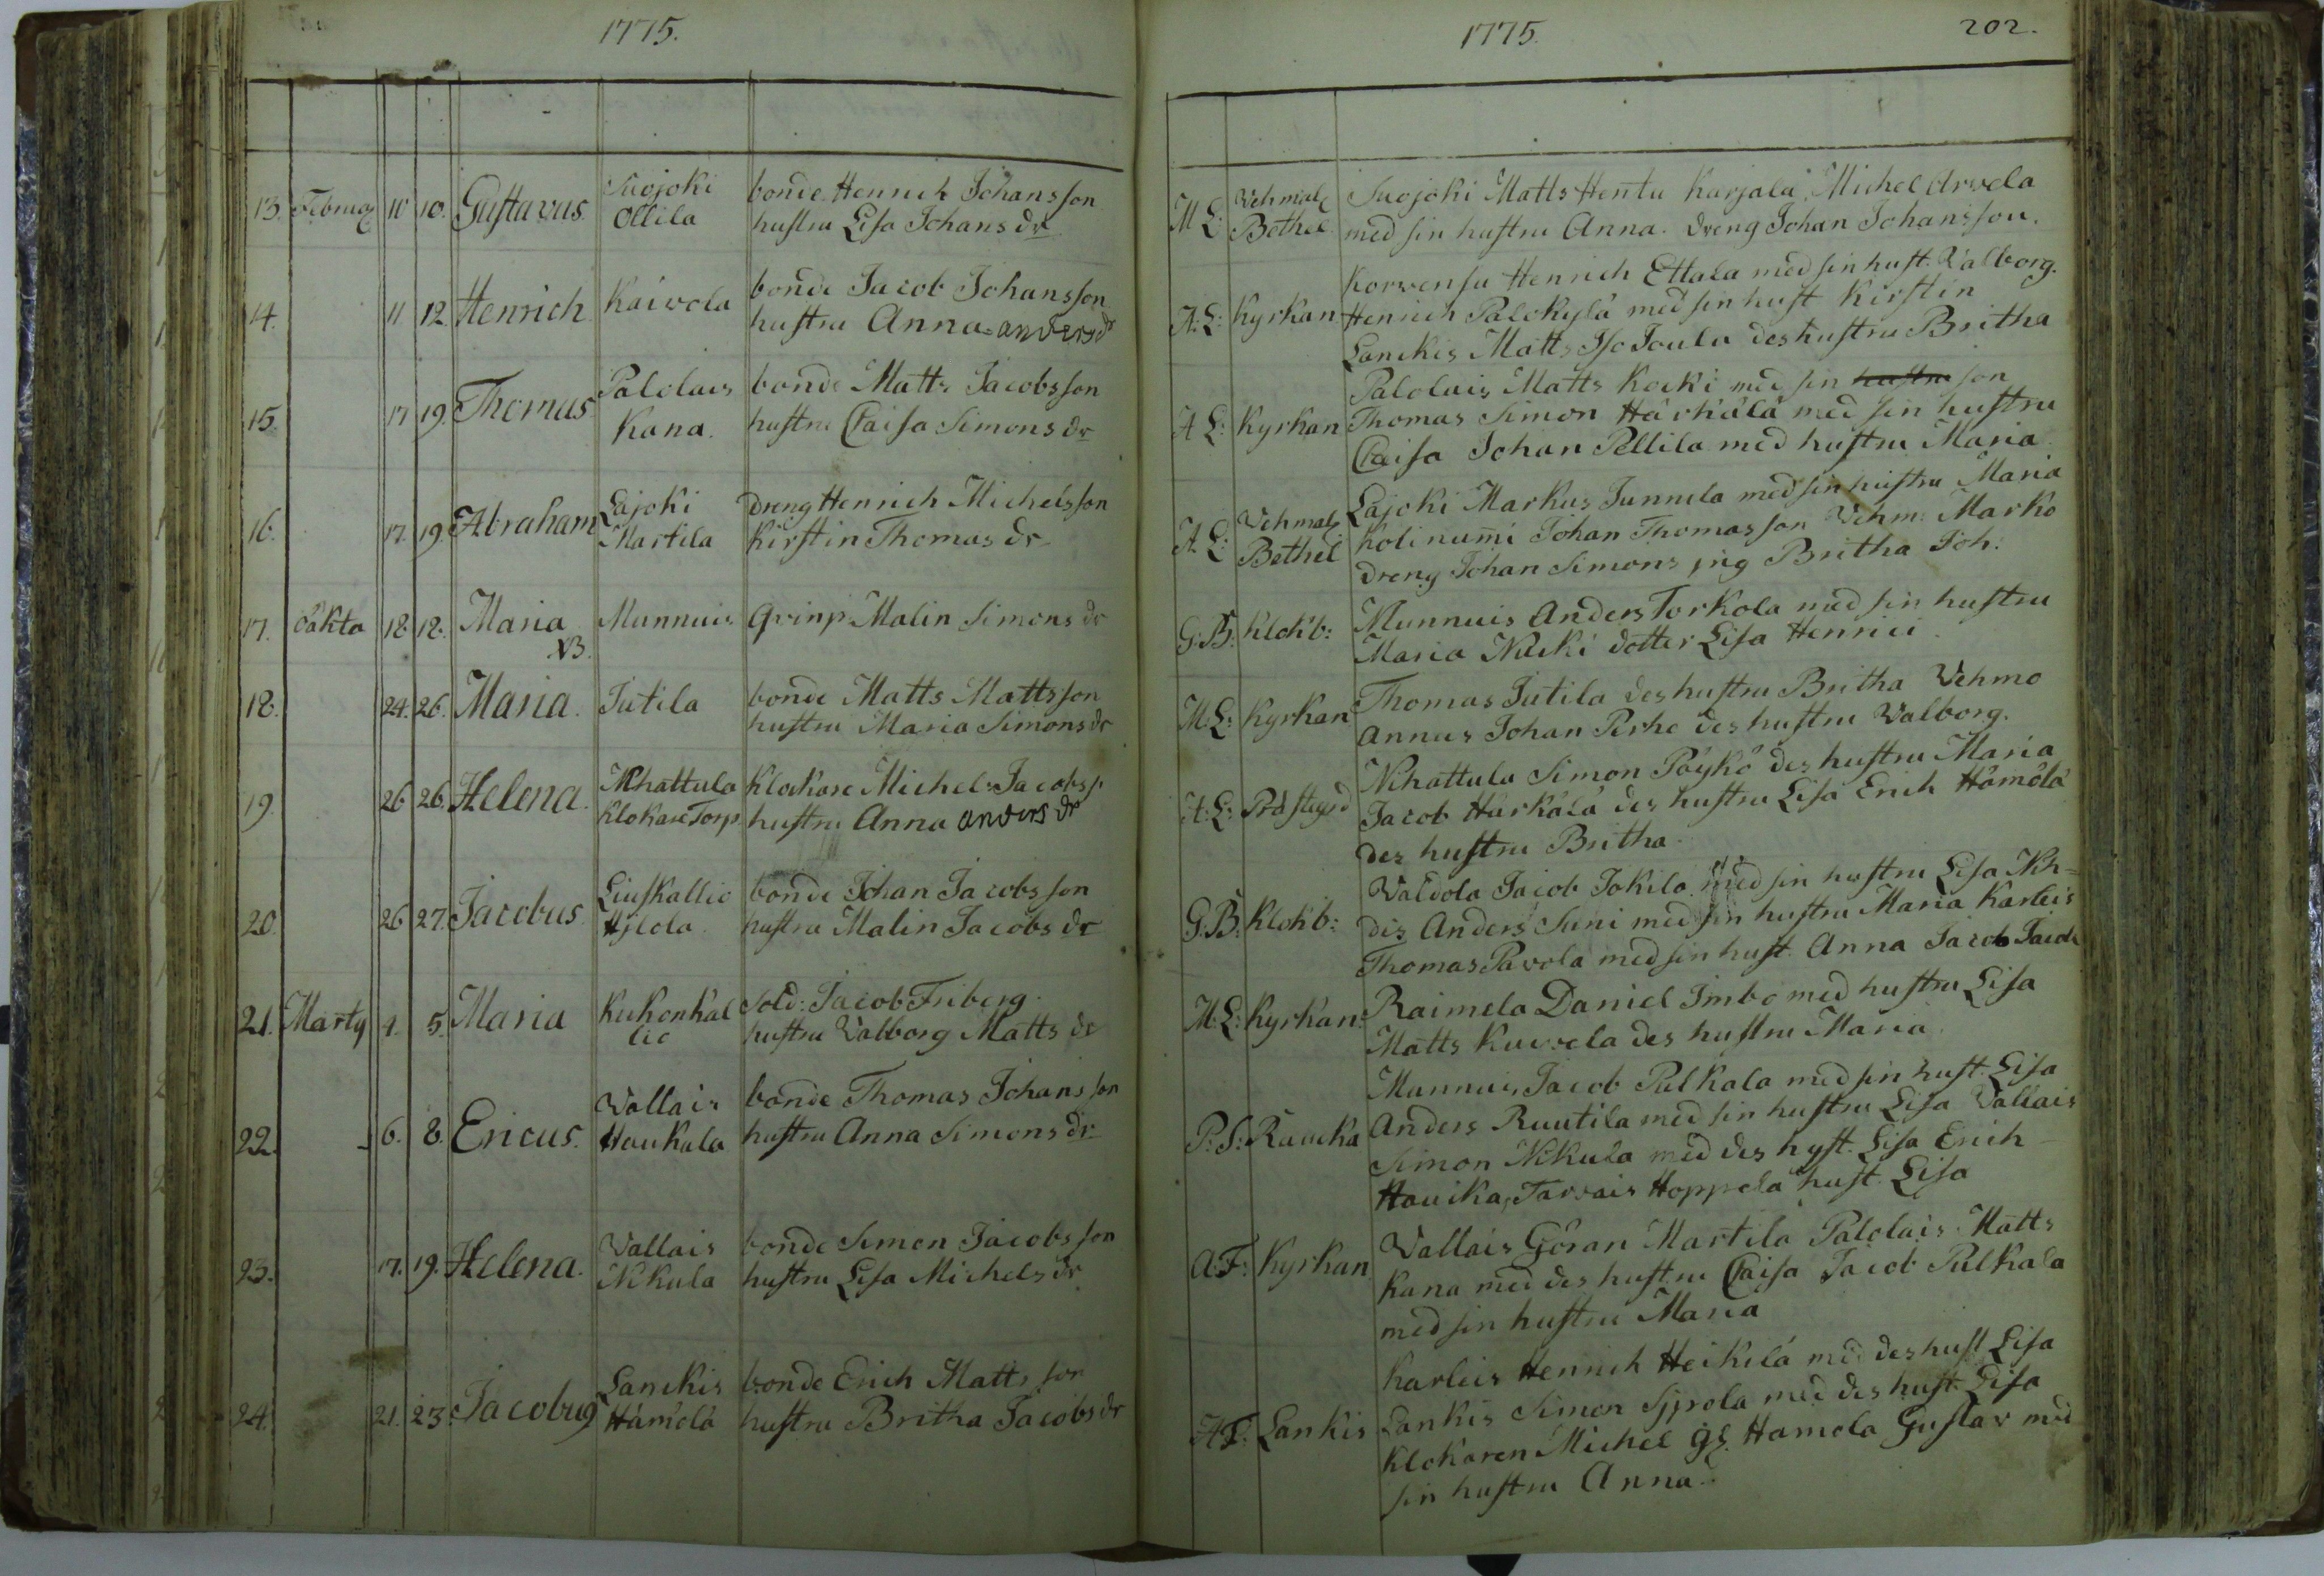 1775.
13. Februa 10 10. Gustavus. Suojoki bonde Henrich Johansson
Ollila hustru Lisa Johans dr
14. 11 12. Henrich Kaivola bonde Jacob Johansson
hustru Anna anders dr
15. 17 19. Thomas Palolais bonde Matts Jacobsson
Kana. hustru Caisa Simons dr
16. 17. 19. Abraham Lajoki Dreng Henrich Michelsson
Martila Kirstin Thomas dr
17. oäkta 18. 18. Maria Munnuis Qvinp: Malin Simons dr
NB.
18. 24. 26. Maria. Jutila bonde Matts Mattsson
hustru Maria Simons dr
19. 26 26. Helena. Nihattula Klockare Michel Jacobss.
Klokare Torp. hustru Anna anders dr
20. 26 27. Jacobus. Liuskallio bonde Johan Jacobsson
hustru Malin Jacobs dr
21. Marty 4. 5. Maria Kukonkal Sold: Jacob Friberg.
lio hustru Valborg Matts dr
22. 6. 8. Ericus. Vallais bonde Thomas Johansson
Haukala hustru Anna Simons dr
23. 17. 19. Helena. Vallais bonde Simon Jacobsson
Nikula hustru Lisa Michels dr
24. 21. 23. Jacobus Lanckis bonde Erich Mattsson
Hämölä hustru Britha Jacobs dr
1775. 202.
M L: Vehmal Suojoki Matts Hentu Karjala Michel Arvela
Bethel med sin hustru Anna. Dreng Johan Johansson.
Korvensu Henrich Ettala med sin hust. Valborg.
A: L: Kyrkan Henrich Palokylä med sin hust Kirstin
Lanckis Matts Iso Toula des hustru Britha
Palolais Matts Kocki med sin hustru son
A L: Kyrkan Thomas Simon Härkälä med sin hustru
Caisa Johan Pellila med hustru Maria
Lajoki Markus Junnila med sin hustru Maria
A L: Vehmal Kolinumi Johan Thomasson Vehm: Marko
Bethel Dreng Johan Simons pig Britha Joh:
G: B: Klok b: Munnuis Anders Torkola med sin hustru
Maria Nicki dotter Lisa Henrici
M: L: Kyrkan Thomas Jutila des hustru Britha Vehmo
Annus Johan Perho des hustru Valborg.
Nihattula Simon Päykö des hustru Maria
A: L: Prästegrd Jacob Härkälä des hustru Lisa Erich Hämölä
des hustru Britha
Valdola Jacob Jokila med sin hustru Lisa Nih=
G: B: Klok b: dis Anders Suni med sin hustru Maria Karleis
Thomas Pavola med sin hust. Anna Jacob
M: L: Kyrkan: Raimela Daniel Imbo med hustru Lisa
Matts Kuusela des hustru Maria
Munnuis Jacob Pulkala med sin hust. Lisa
P: S: Raucka Anders Ruutila med sin hustru Lisa Vallais
Simon Nikula med des hust. Lisa Erich
Hauika, Tarvais Hoppela hust. Lisa
A: F: Kyrkan Vallais Göran Martila Palolais Matts
Kana med des hustru Caisa Jacob Pulkala
med sin hustru Maria
Karleis Henrich Heikilä med des hust Lisa
A F: Lankis Lankis Simon Sjprola med des hust. Lisa
Klokaren Michel gl. Hamola Gustav med
sin hustru Anna.